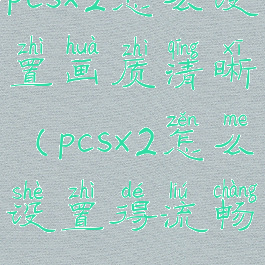 pcsx2怎么设
zhì huà zhì qīng xī
置画质清晰
zěn me
(pcsx2怎么
shè zhì dé liú chàng
设置得流畅